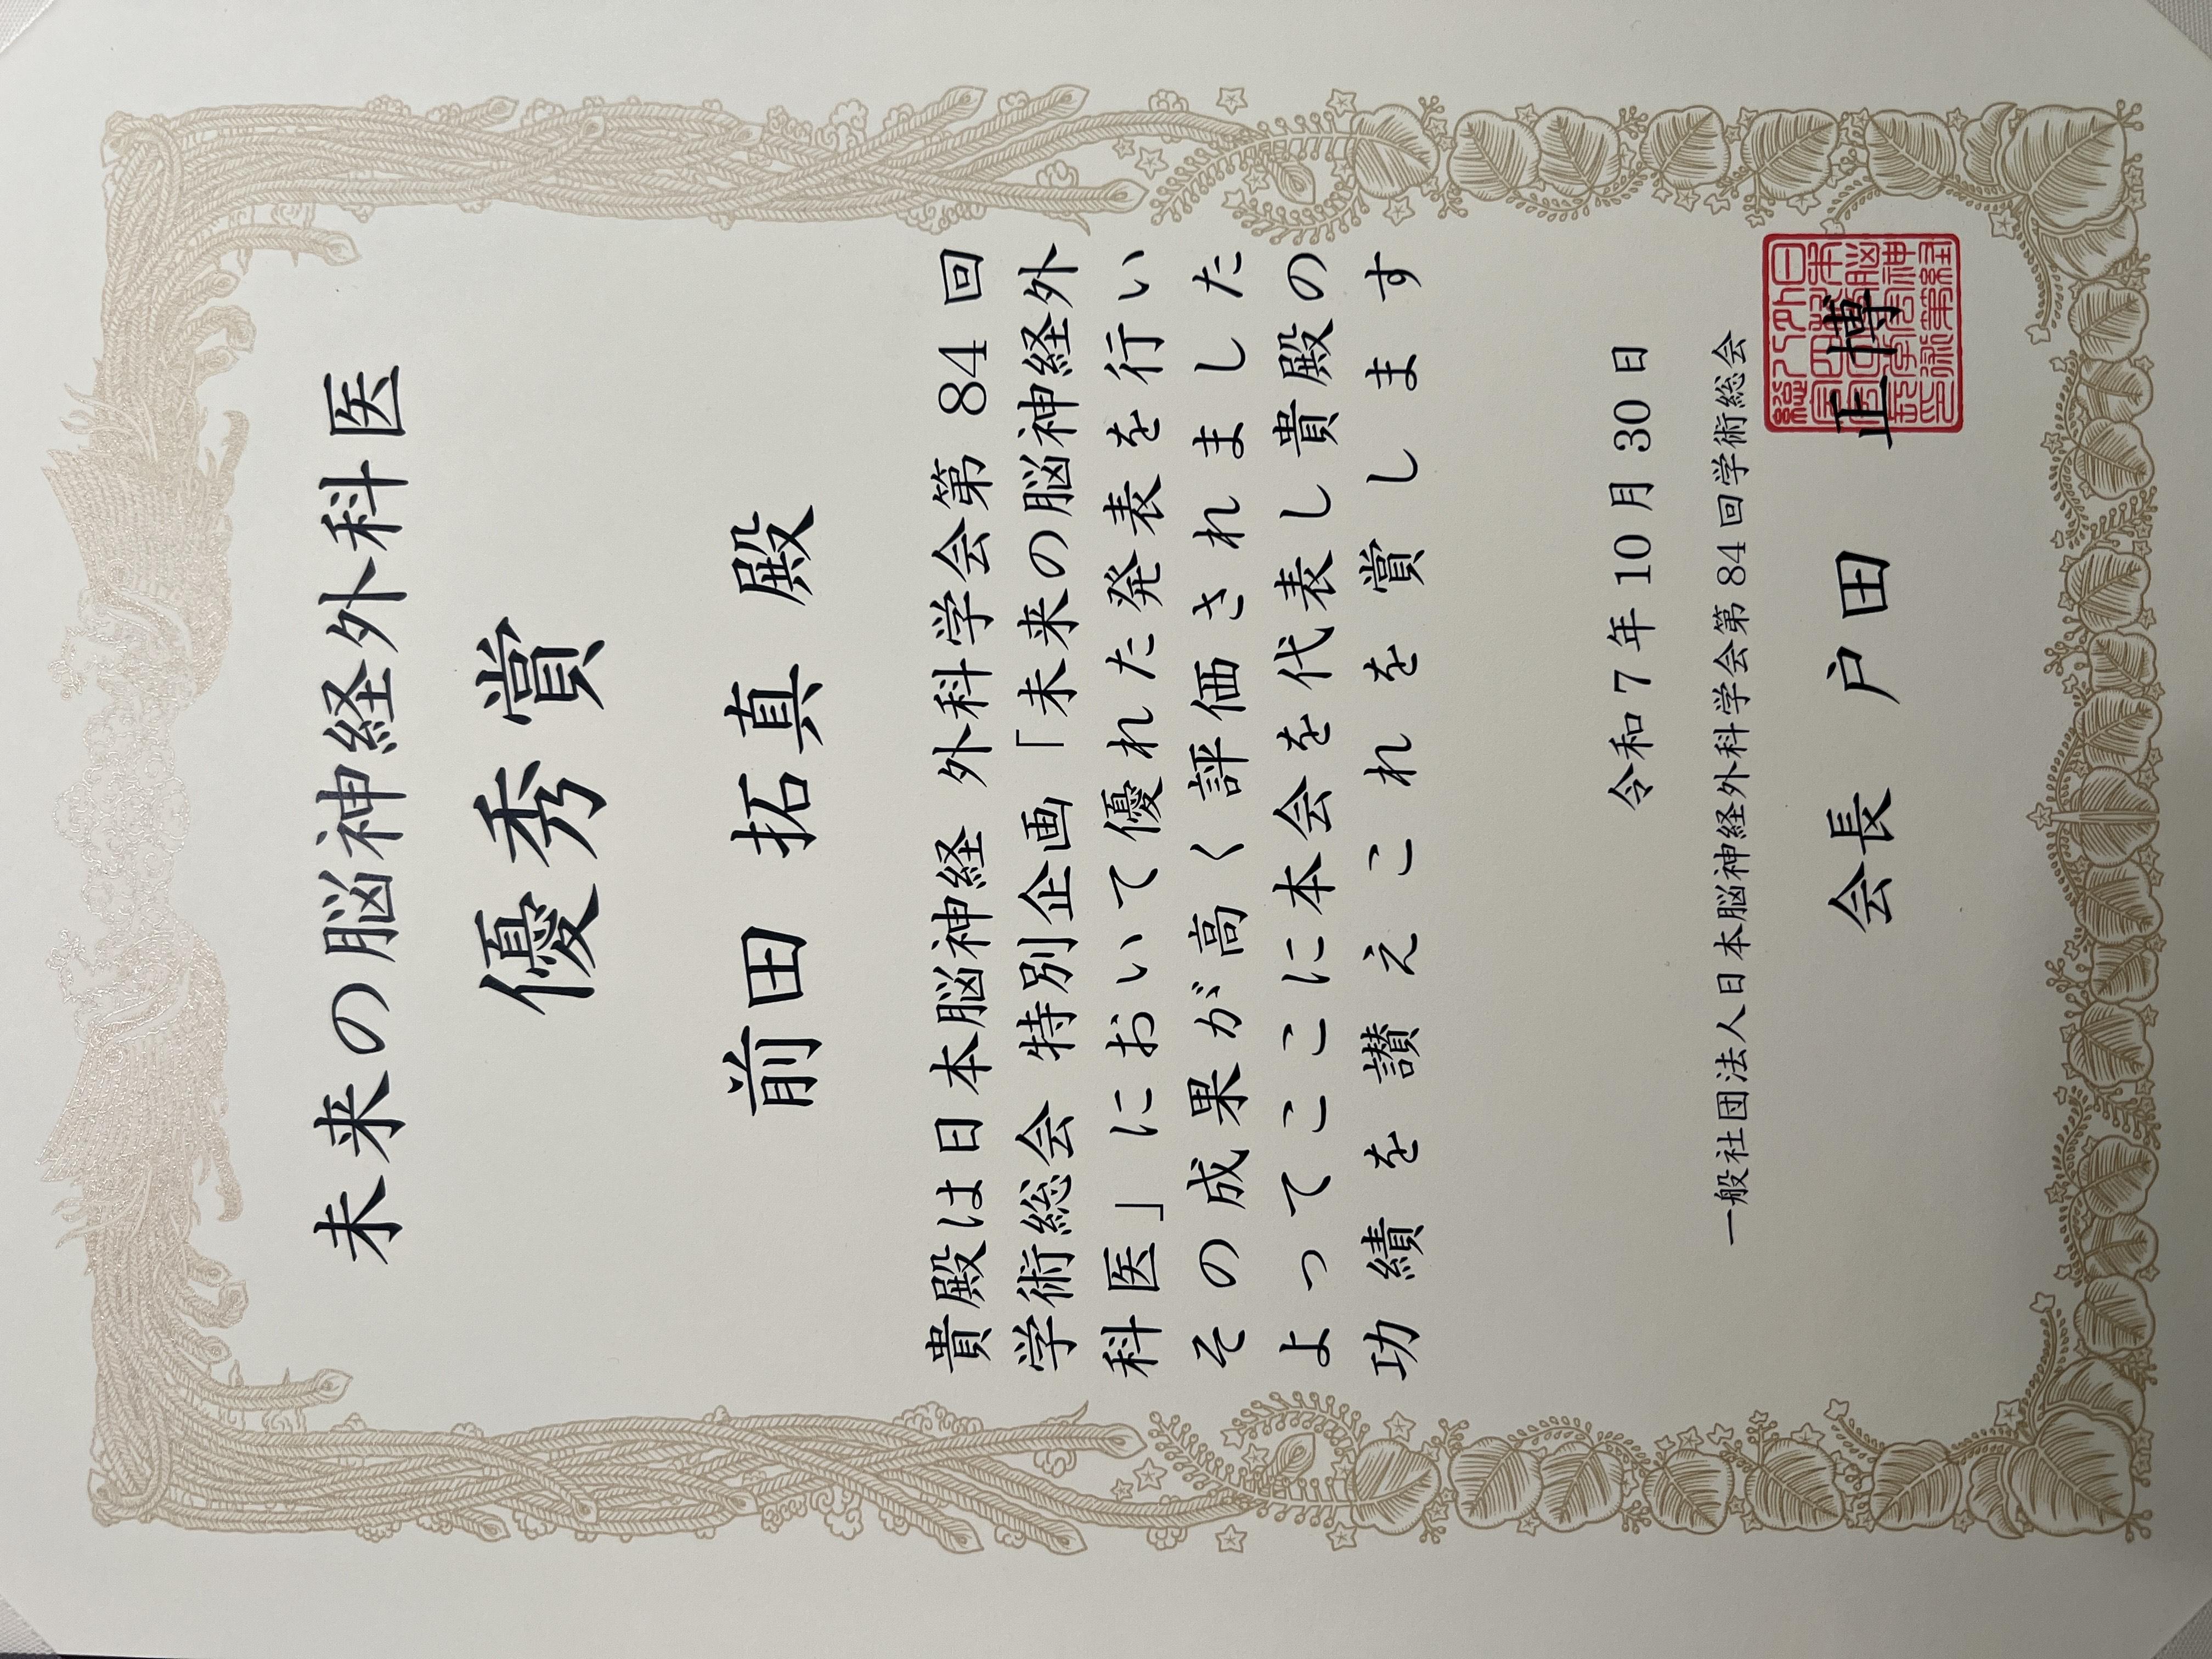 未来の脳神経外科医
優秀賞
前田 拓真 殿
貴殿は日本脳神経 外科学会第 84 回
学術総会 特別企画「未来の脳神経外
科医」において優れた発表を行い
その成果が高く評価されました
よってここに本会を代表し貴殿の
功績を讃えこれを賞します
令和 7 年 10 月 30 日
一般社団法人日本脳神経外科学会第 84 回学術総会
会長 戸田 正博